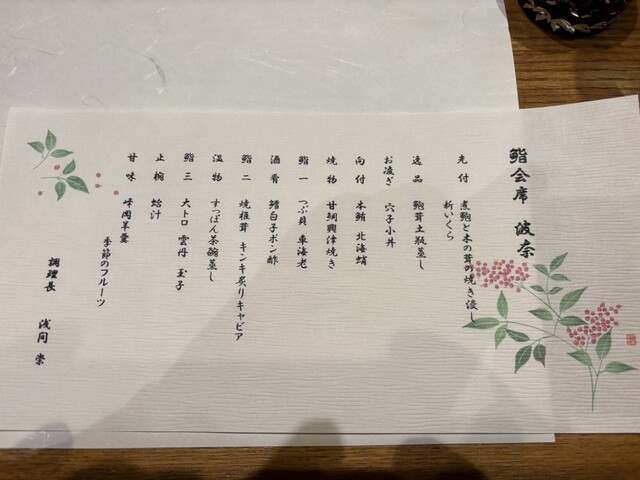 鮨会席 波奈
先付 煮鮑と木の茸の焼き浸し
新いくら
逸品 鮑茸土瓶蒸し
お凌ぎ 穴子小丼
向付 本鮪 北海蛸
焼物 甘鯛興津焼き
鮨一 つぶ貝 車海老
酒肴 鱈白子ポン酢
鮨二 焼椎茸 キンキ炙りキャビア
温物 すっぽん茶碗蒸し
鮨三 大トロ 雲丹 玉子
止椀 蛤汁
甘味 峰岡羊羹
季節のフルーツ
調理長 浅間 崇